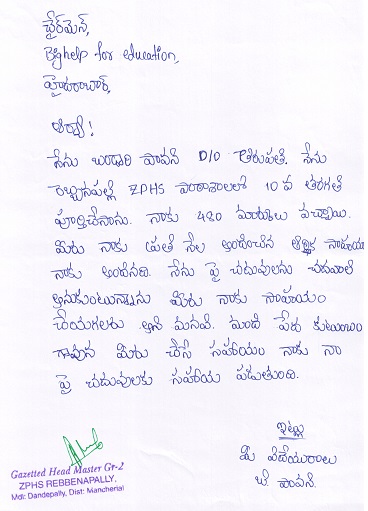 ఛైర్మెన్,
Bighelp for education,
హైదరాబాద్,
ఆర్యా!
నేను బండారి పావని D/O తిరుపతి. నేను
రెబ్బనపల్లె ZPHS పాఠశాలలో 10 వ తరగతి
పూర్తిచేసాను. నాకు 480 మార్కులు వచ్చాయి.
మీరు నాకు ప్రతి నెల అందించిన ఆర్థిక సాహయం
నాకు అందినది. నేను పై చదువులను చదవాలి
అనుకుంటున్నాను మీరు నాకు సాహయం
చేయగలరు అని మనవి. మాది పేద కుటుంబం
గావున మీరు చేసే సహాయం నాకు నా
పై చదువులకు సహాయ పడుతుంది.
ఇట్లు
మీ విదేయురాలు
బి పావని.
Gazetted Head Master Gr-2
ZPHS REBBENAPALLY,
Mdl: Dandepally, Dist: Mancherial